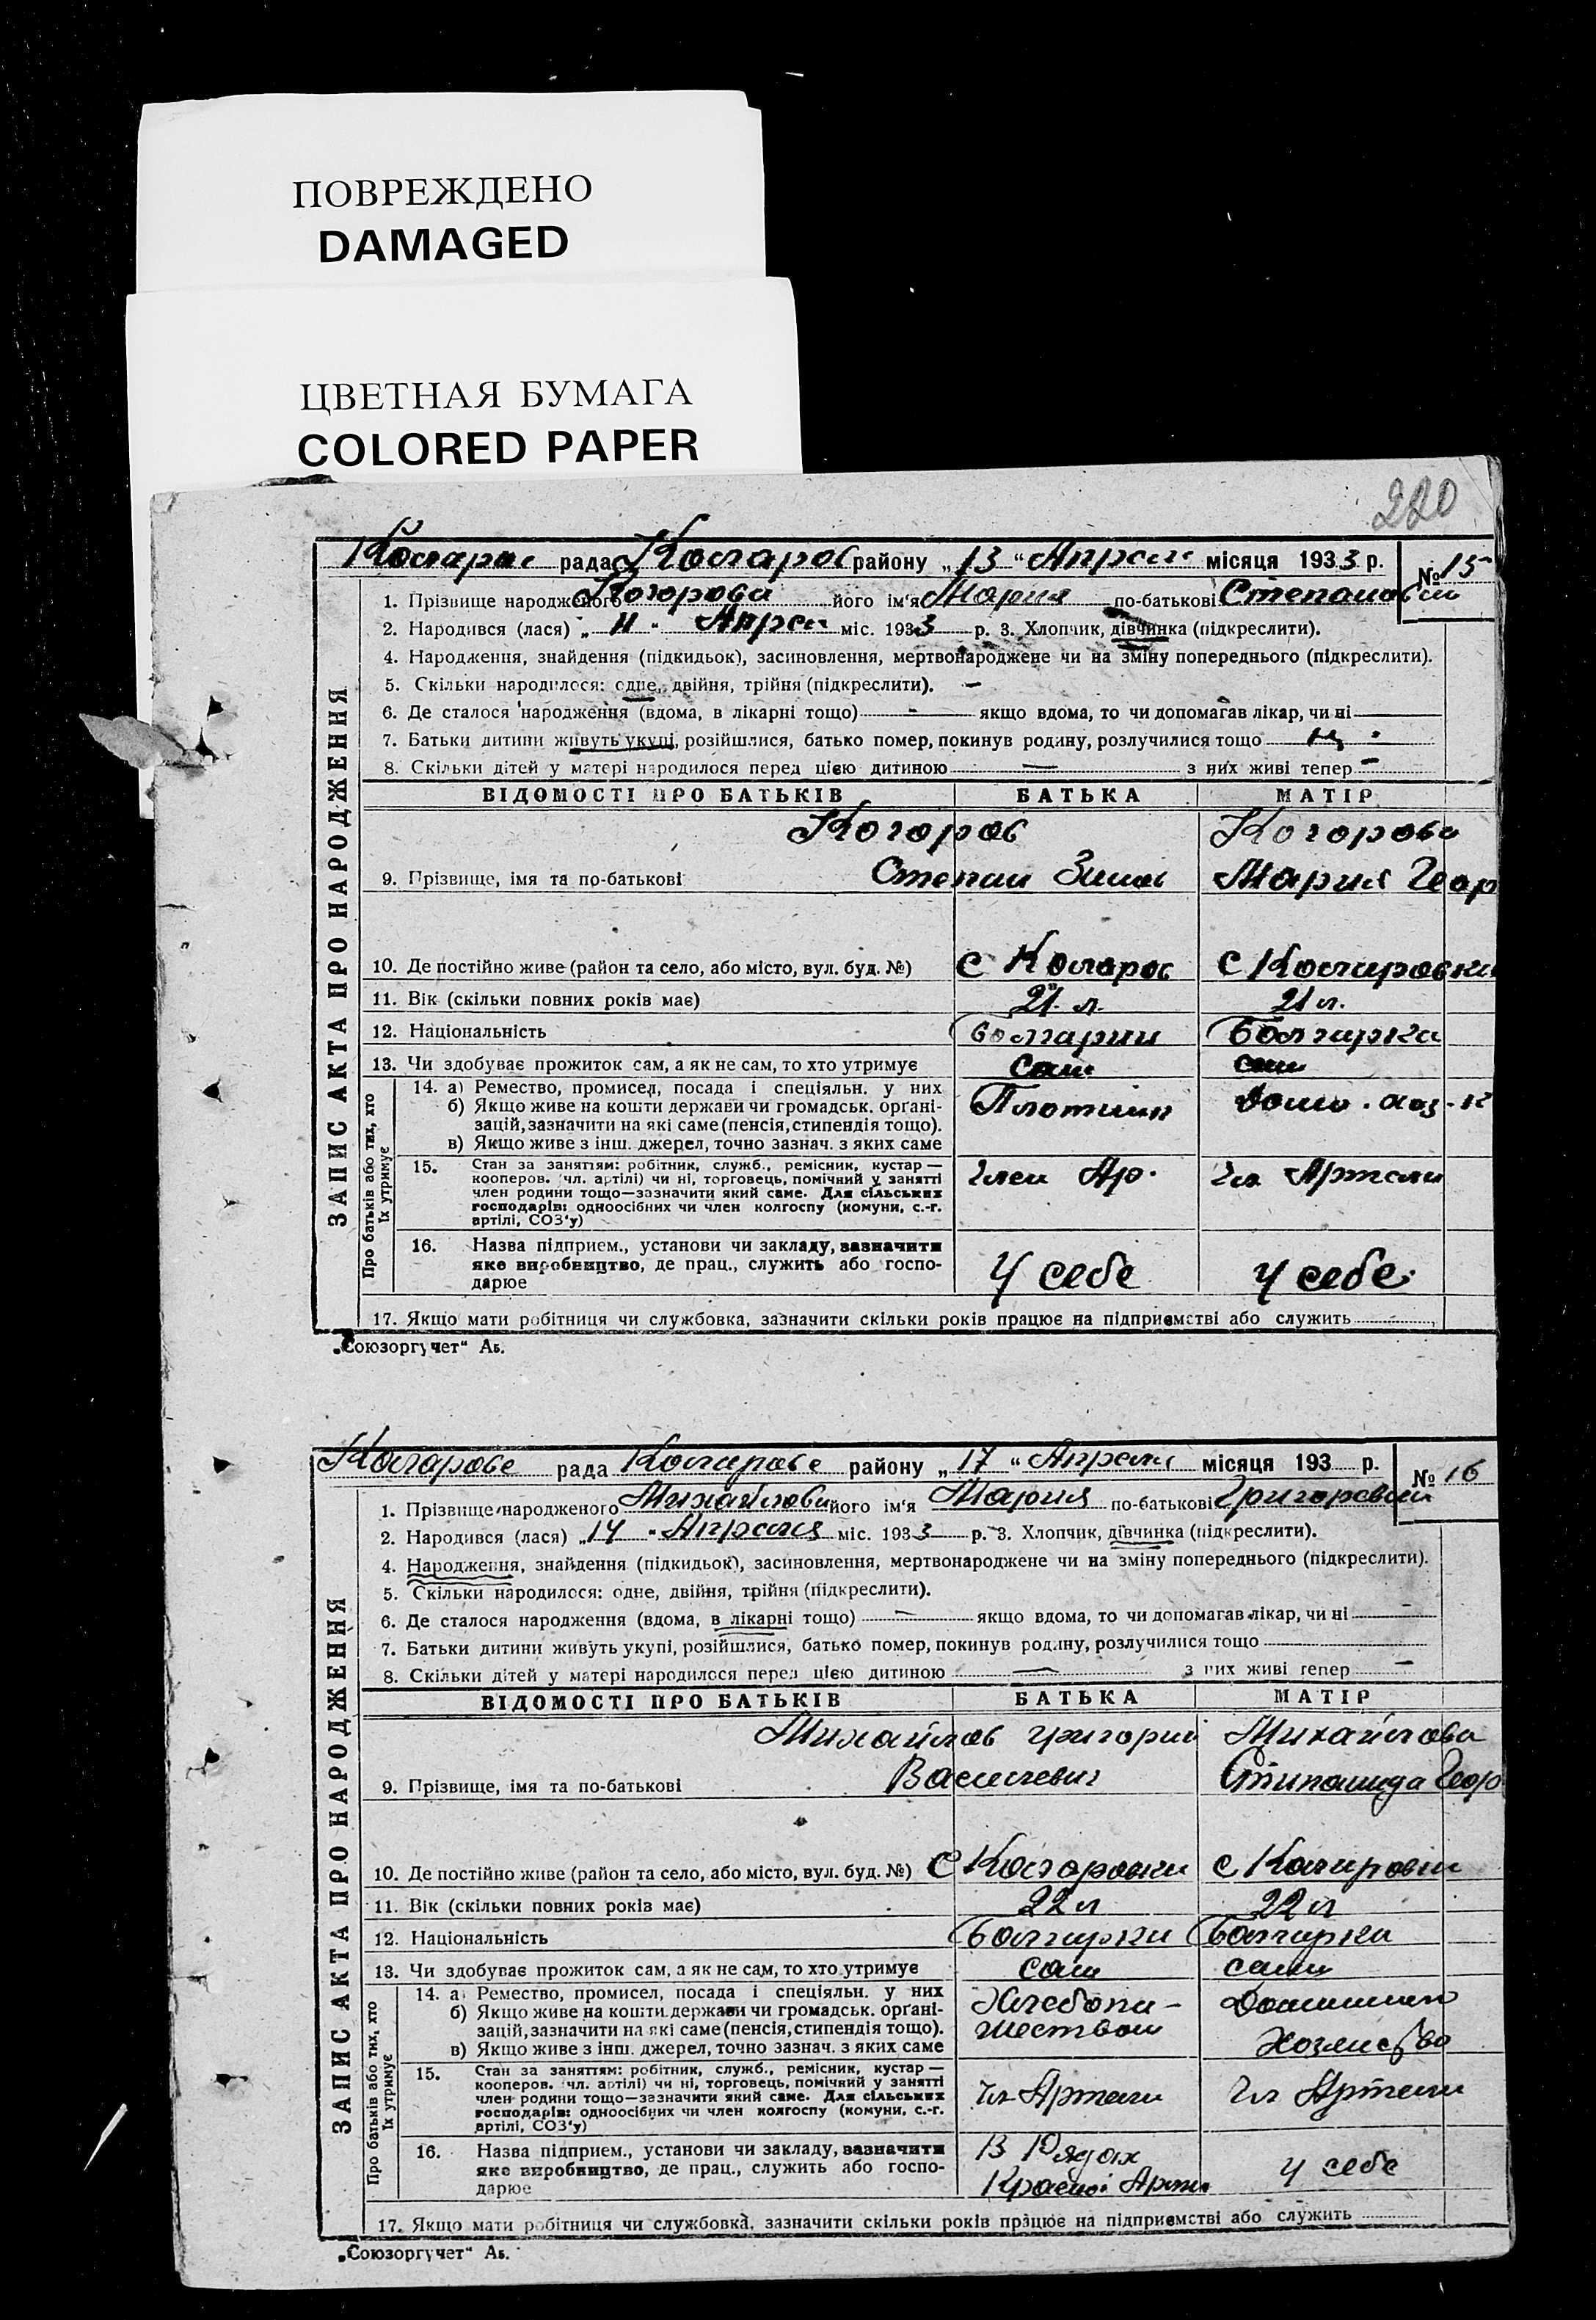 ПОВРЕЖДЕНО
DAMAGED
ЦВЕТНАЯ БУМАГА
COLORED PAPER
220
рада району „13“ місяця 1933 р. № 15
1. Прізвище народженого його ім'я Мария по-батькові
2. Народився (лася) „11“ міс. 1933 р. 3. Хлопчик, дівчинка (підкреслити).
4. Народження, знайдення (підкидьок), засиновлення, мертвонароджене чи на зміну попереднього (підкреслити).
5. Скільки народилося: одне, двійня, трійня (підкреслити). —
6. Де сталося народження (вдома, в лікарні тощо) — якщо вдома, то чи допомагав лікар, чи ні —
7. Батьки дитини живуть укупі, розійшлися, батько помер, покинув родину, розлучилися тощо
8. Скільки дітей у матері народилося перед цією дитиною — з них живі тепер —
ЗАПИС АКТА ПРО НАРОДЖЕННЯ
ВІДОМОСТІ ПРО БАТЬКІВ БАТЬКА МАТІР
Когоров Когорова
9. Прізвище, імя та по-батькові Степан Мария Геор
10. Де постійно живе (район та село, або місто, вул. буд. №) с с
11. Вік (скільки повних років має) 21 л. 21 л.
12. Національність Болгарин Болгарка
13. Чи здобуває прожиток сам, а як не сам, то хто утримує сам сам
Про батьків або тих, хто їх утримує
14. а) Ремество, промисел, посада і спеціяльн. у них
б) Якщо живе на кошти держави чи громадськ. орґані-
зацій, зазначити на які саме (пенсія, стипендія тощо).
в) Якщо живе з інш. джерел, точно зазнач. з яких саме
Плотник
15. Стан за заняттям: робітник, служб., ремісник, кустар —
кооперов. (чл. артілі) чи ні, торговець, помічний у занятті
член родини тощо—зазначити який саме. Для сільських
господарів: одноосібних чи член колгоспу (комуни, с.-г.
артілі, СОЗ'у)
Член Ар. Чл Артели
16. Назва підприєм., установи чи закладу, зазначити
яке виробництво, де прац., служить або госпо-
дарює
У себе у себе
17. Якщо мати робітниця чи службовка, зазначити скільки років працює на підприємстві або служить
„Союзоргучет“ Аб.
рада району „17“ Апреля місяця 193 р. № 16
1. Прізвище народженого Михайлова його ім'я Мария по-батькові
2. Народився (лася) „14“ Апреля міс. 1933 р. 3. Хлопчик, дівчинка (підкреслити).
4. Народження, знайдення (підкидьок), засиновлення, мертвонароджене чи на зміну попереднього (підкреслити).
5. Скільки народилося: одне, двійня, трійня (підкреслити).
6. Де сталося народження (вдома, в лікарні тощо) — якщо вдома, то чи допомагав лікар, чи ні
7. Батьки дитини живуть укупі, розійшлися, батько помер, покинув родину, розлучилися тощо
8. Скільки дітей у матері народилося перед цією дитиною — з них живі тепер —
ЗАПИС АКТА ПРО НАРОДЖЕННЯ
ВІДОМОСТІ ПРО БАТЬКІВ БАТЬКА МАТІР
Михайлов Григорий Михайлова
9. Прізвище, імя та по-батькові Василевич Геор
10. Де постійно живе (район та село, або місто, вул. буд. №) с с
11. Вік (скільки повних років має) 22 л 22 л
12. Національність Болгарка
13. Чи здобуває прожиток сам, а як не сам, то хто утримує сам
Про батьків або тих, хто їх утримує
14. а) Ремество, промисел, посада і спеціяльн. у них
б) Якщо живе на кошти держави чи громадськ. орґані-
зацій, зазначити на які саме (пенсія, стипендія тощо).
в) Якщо живе з інш. джерел, точно зазнач. з яких саме
15. Стан за заняттям: робітник, служб., ремісник, кустар —
кооперов. (чл. артілі) чи ні, торговець, помічний у занятті
член родини тощо—зазначити який саме. Для сільських
господарів: одноосібних чи член колгоспу (комуни, с.-г.
артілі, СОЗ'у)
Чл Артели Чл Артели
16. Назва підприєм., установи чи закладу, зазначити
яке виробництво, де прац., служить або госпо-
дарює
В Рядах
у себе
17. Якщо мати робітниця чи службовка, зазначити скільки років працює на підприємстві або служить
„Союзоргучет“ Аб.